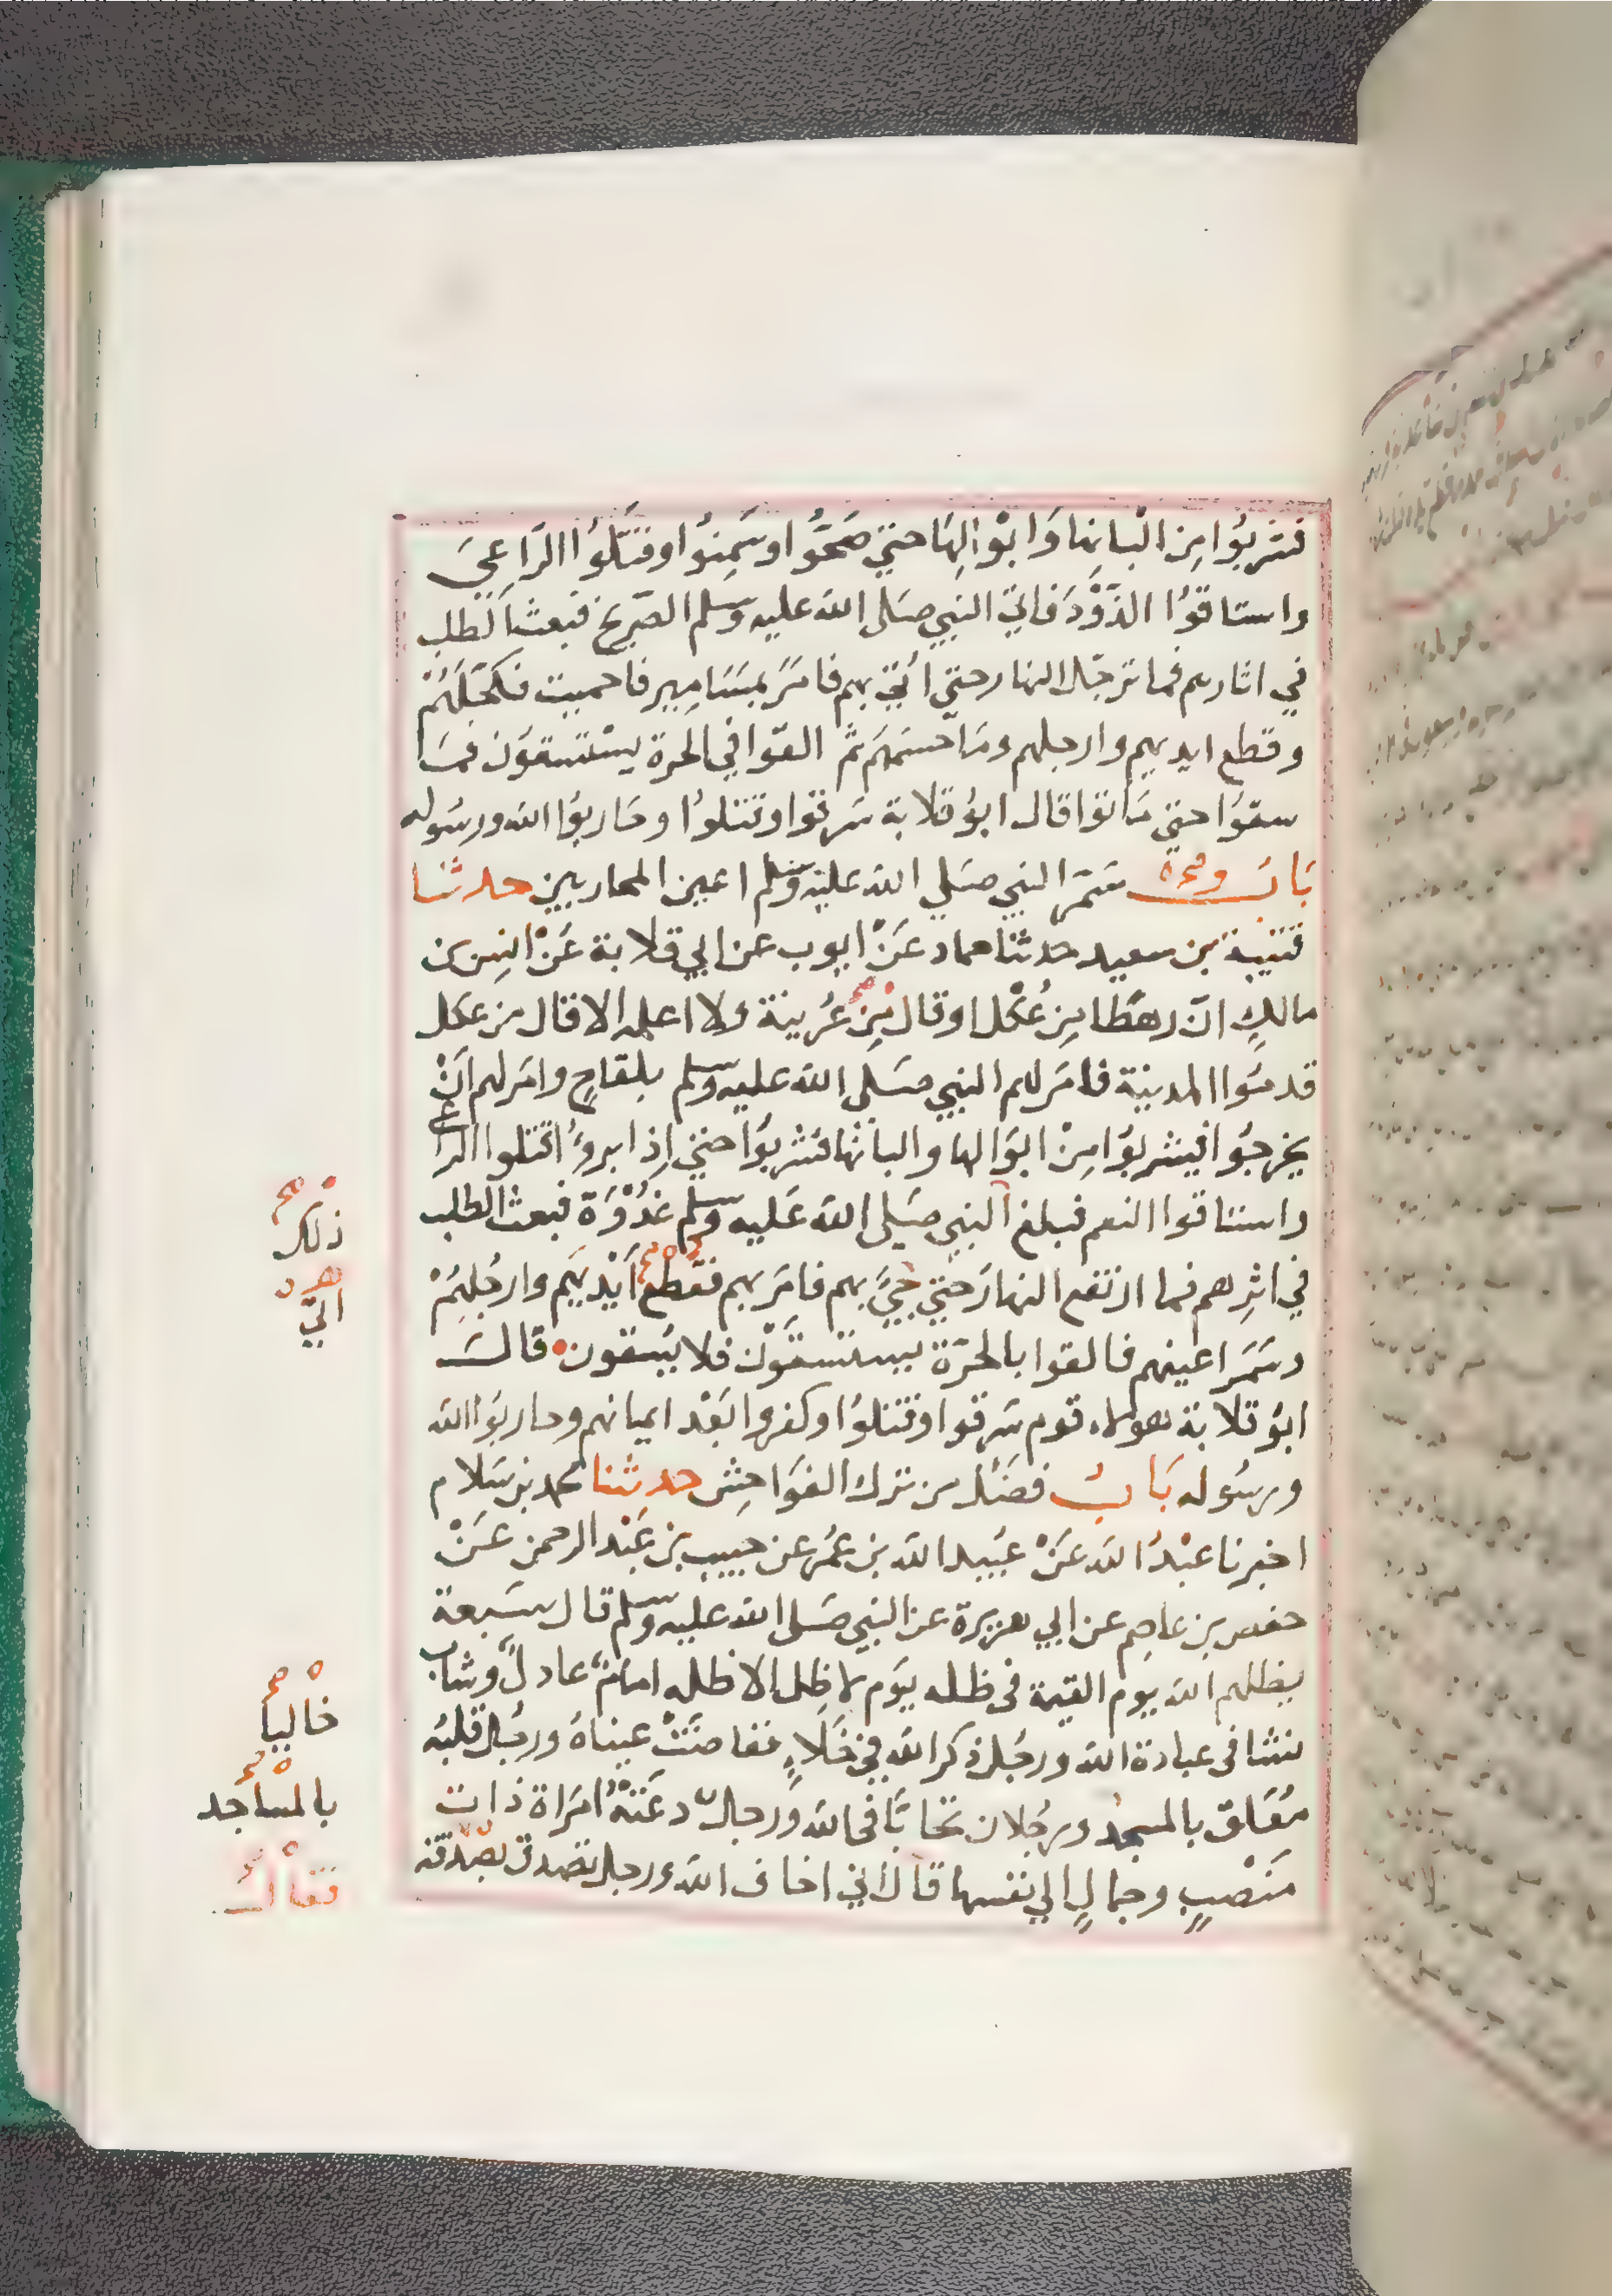 فشربوا من البانها وابوالها حتي صحوا وسمنوا وقتلوا الراعي
واستاقوا الذود فاتي النبي صلى الله عليه وسلم الصريخ فبعث الطلب
في اثارهم فما ترجل النهار حتي اُتي بهم فامر بمسامير فاحميت فكحلهم
وقطع ايديهم وارجلهم وما حسمهم ثم القوا في الحرة يستسقون فما
سقوا حتي ماتوا قال ابو قلابة سرقوا وقتلوا وحاربوا الله ورسوله
باب سمر النبي صلي الله عليه وسلم اعين المحاربين حدثنا
قتيبة بن سعيد حدثنا حماد عن ايوب عن ابي قلابة عن انس بن
مالك ان رهطا من عكل او قال من عرينة ولا اعلمه الا قال من عكل
قدموا المدينة فامر لهم النبي صلى الله عليه وسلم بلقاح وامر لهم ان
يخرجوا فيشربوا من ابوالها والبانها فشربوا حتي اذا برؤا قتلوا الراعي
واستاقوا النعم فبلغ النبي صلى الله عليه وسلم غدوة فبعث الطلب
في اثرهم فما ارتفع النهار حتي جيَ بهم فامر بهم فقطع ايديهم وارجلهم
وسمر اعينهم فالقوا بالحرة يستسقون فلا يسقون قال
ابو قلابة هولاء قوم سرقوا وقتلوا وكفروا بعد ايمانهم وحاربوا الله
ورسوله باب فضل من ترك الفواحش حدثنا محمد بن سلام
اخبرنا عبد الله عن عبيد الله بن عمر عن حبيب بن عبد الرحمن عن
حفص بن عاصم عن ابي هريرة عن النبي صلى الله عليه وسلم قال سبعة
يظلهم الله يوم القيمة في ظله يوم لا ظل الا ظله امام عادل وشاب
نشا في عبادة الله ورجل ذكر الله في خلاء ففاضت عيناه ورجل قلبه
معلق بالمسجد ورجلان تحابا في الله ورجل دعته امراة ذات
منصب وجمال الي نفسها قال اني اخاف الله ورجل تصدق بصدقة
ذلك
الي
خاليا
بالمساجد
فقال